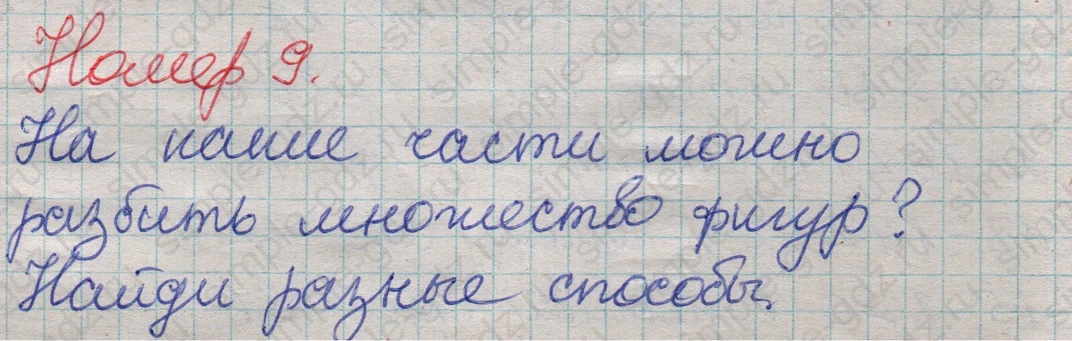 Номер 9.
На какие части можно
разбить множество фигур?
Найди разные способы.